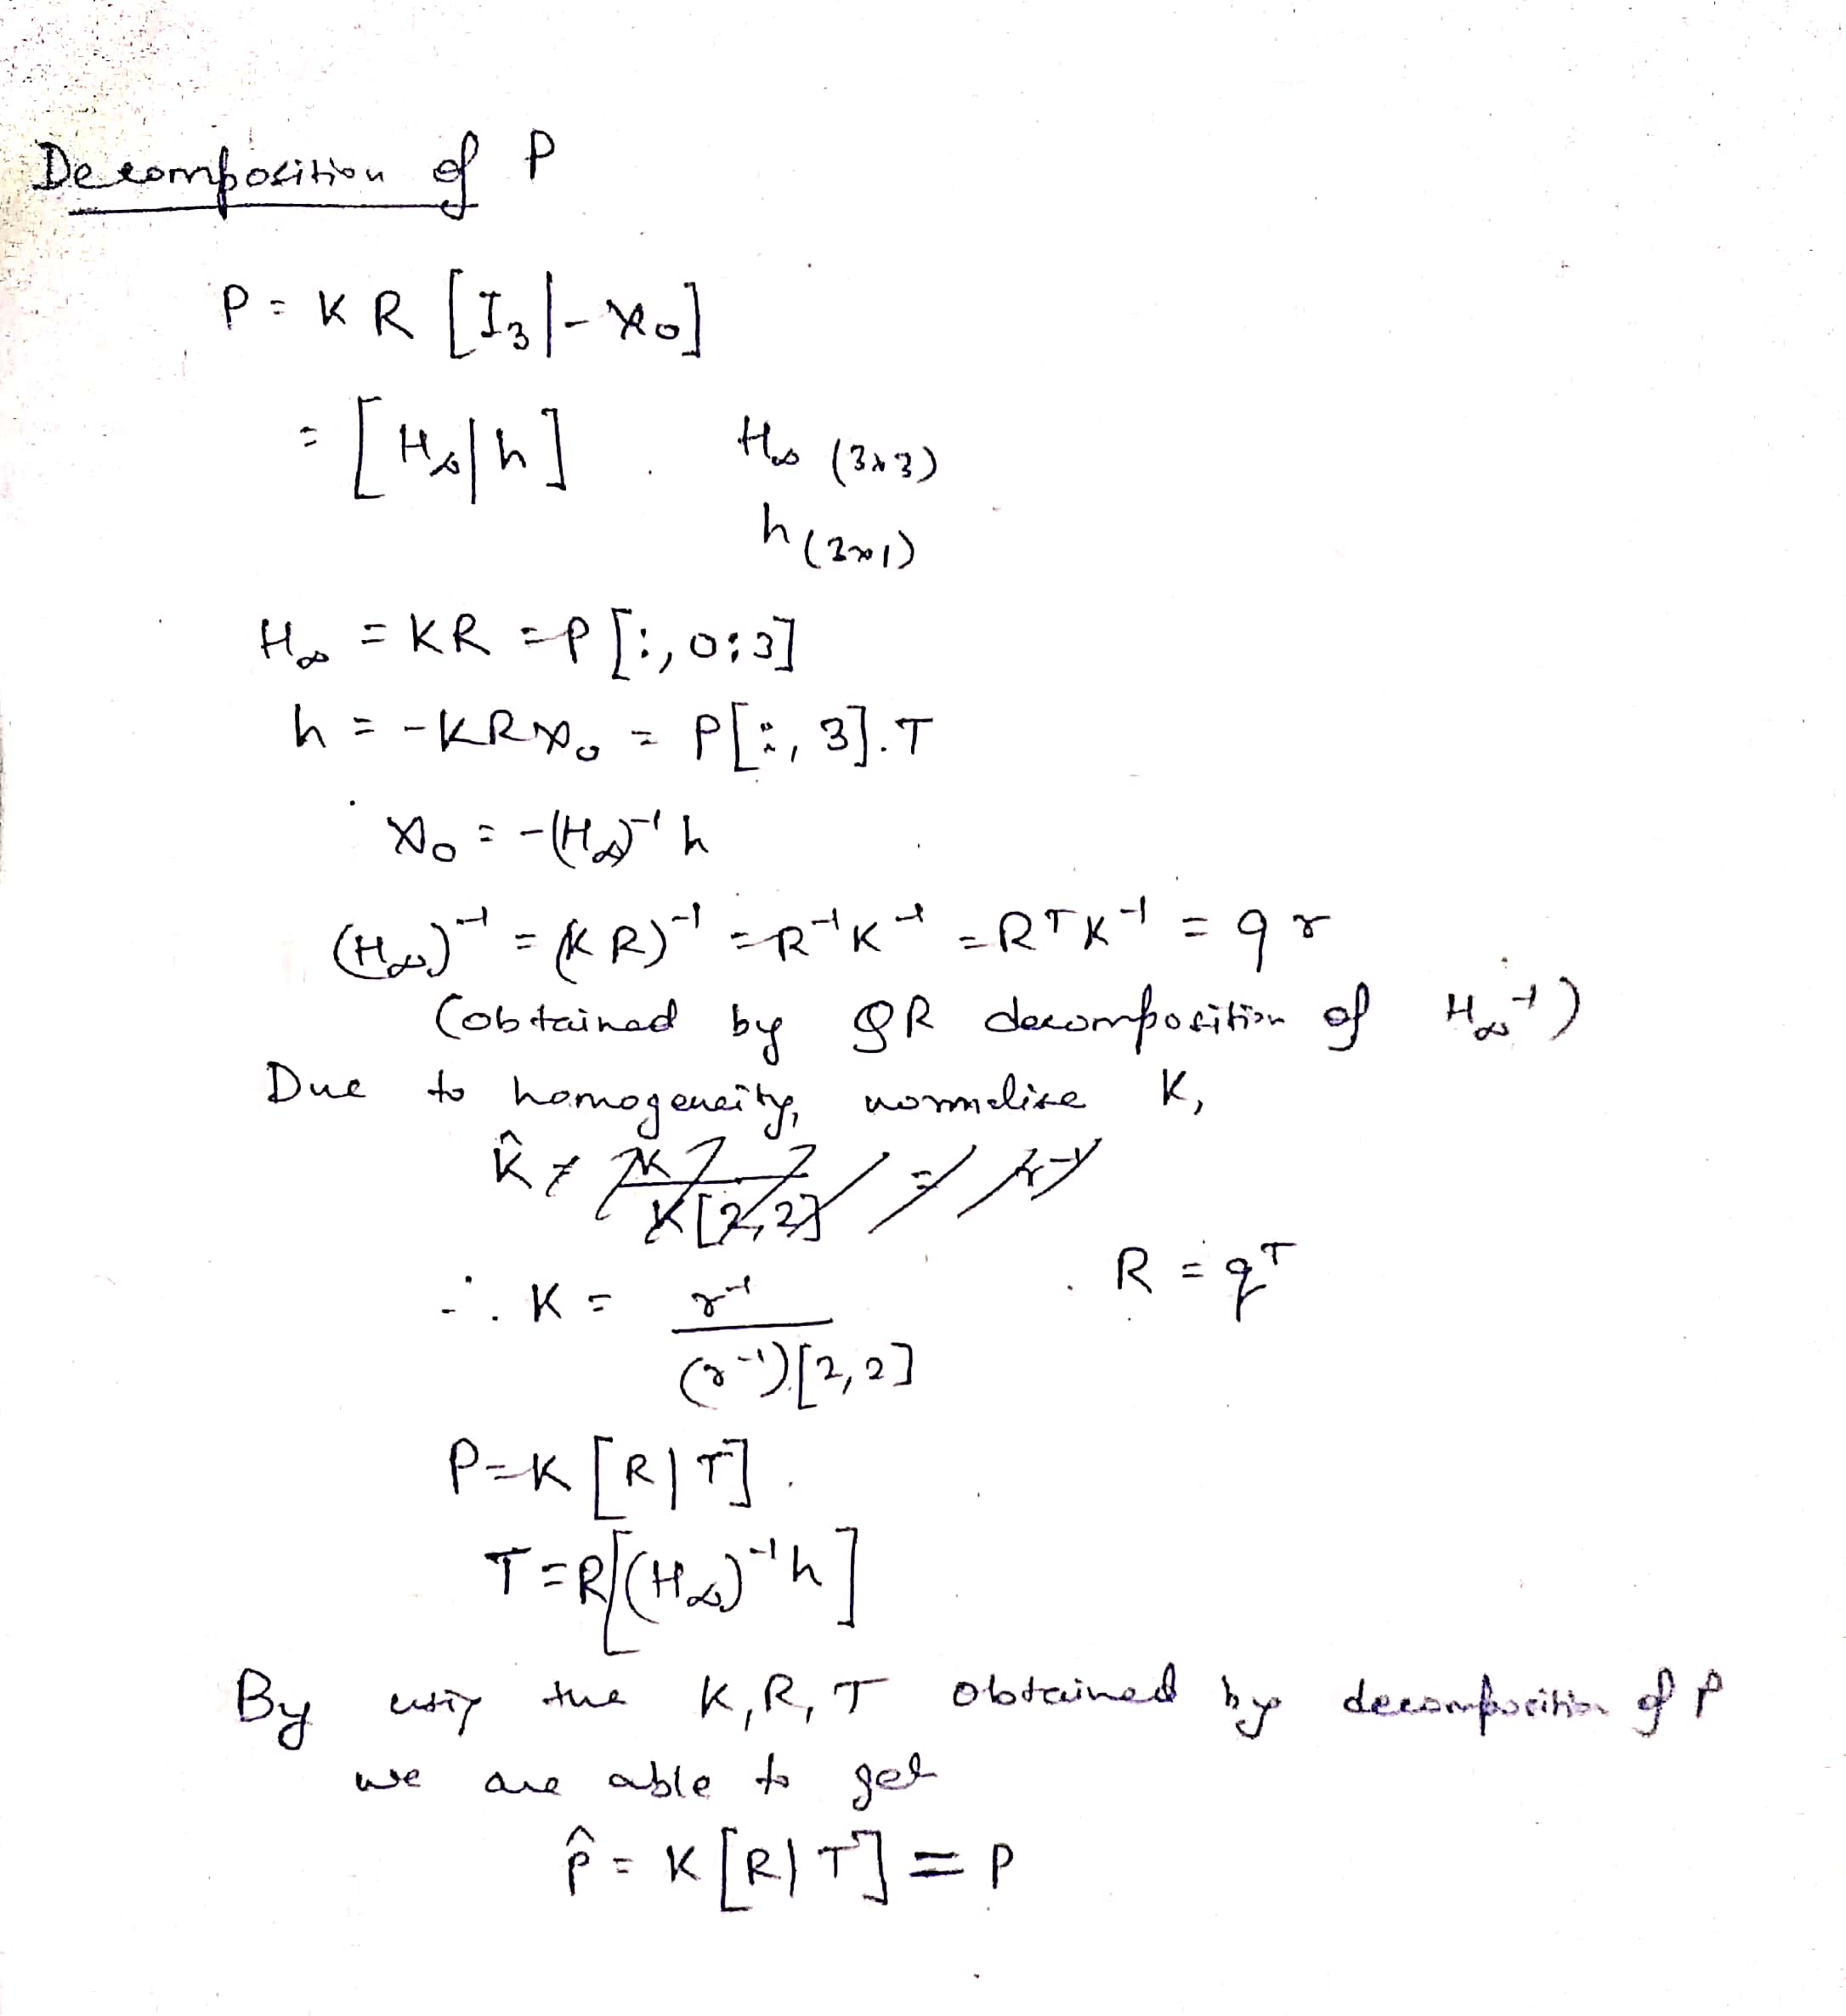 Decomposition of P
P = K R [I₃ | - X₀]
= [H∞ | h]   H∞ (3x3)
h (3x1)
H∞ = KR = P[:, 0:3]
h = -KRX₀ = P[:, 3].T
X₀ = -(H∞)⁻¹ h
(H∞)⁻¹ = (KR)⁻¹ = R⁻¹K⁻¹ = RᵀK⁻¹ = q r
(obtained by QR decomposition of H∞⁻¹)
Due to homogeneity, normalise K,
K̂ = K / K[2,2] = r⁻¹
∴ K = r⁻¹ / (r⁻¹)[2,2]   R = qᵀ
P = K [R | T]
T = R[(H∞)⁻¹h]
By using the K, R, T obtained by decomposition of P
we are able to get
P̂ = K [R | T] = P